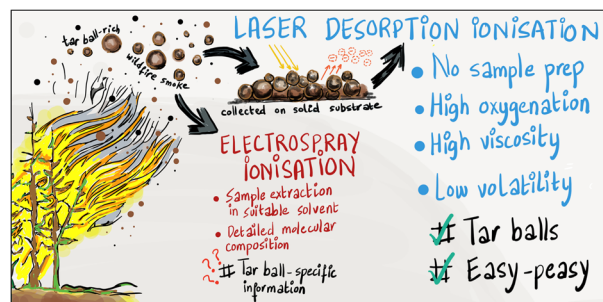 tar ball-rich
wildfire smoke
LASER DESORPTION IONISATION
collected on solid substrate
• No sample prep
• High oxygenation
• High viscosity
• Low volatility
# Tar balls
# Easy-peasy
ELECTROSPRAY
IONISATION
• Sample extraction
in suitable solvent
• Detailed molecular
composition
???
# Tar ball-specific
information